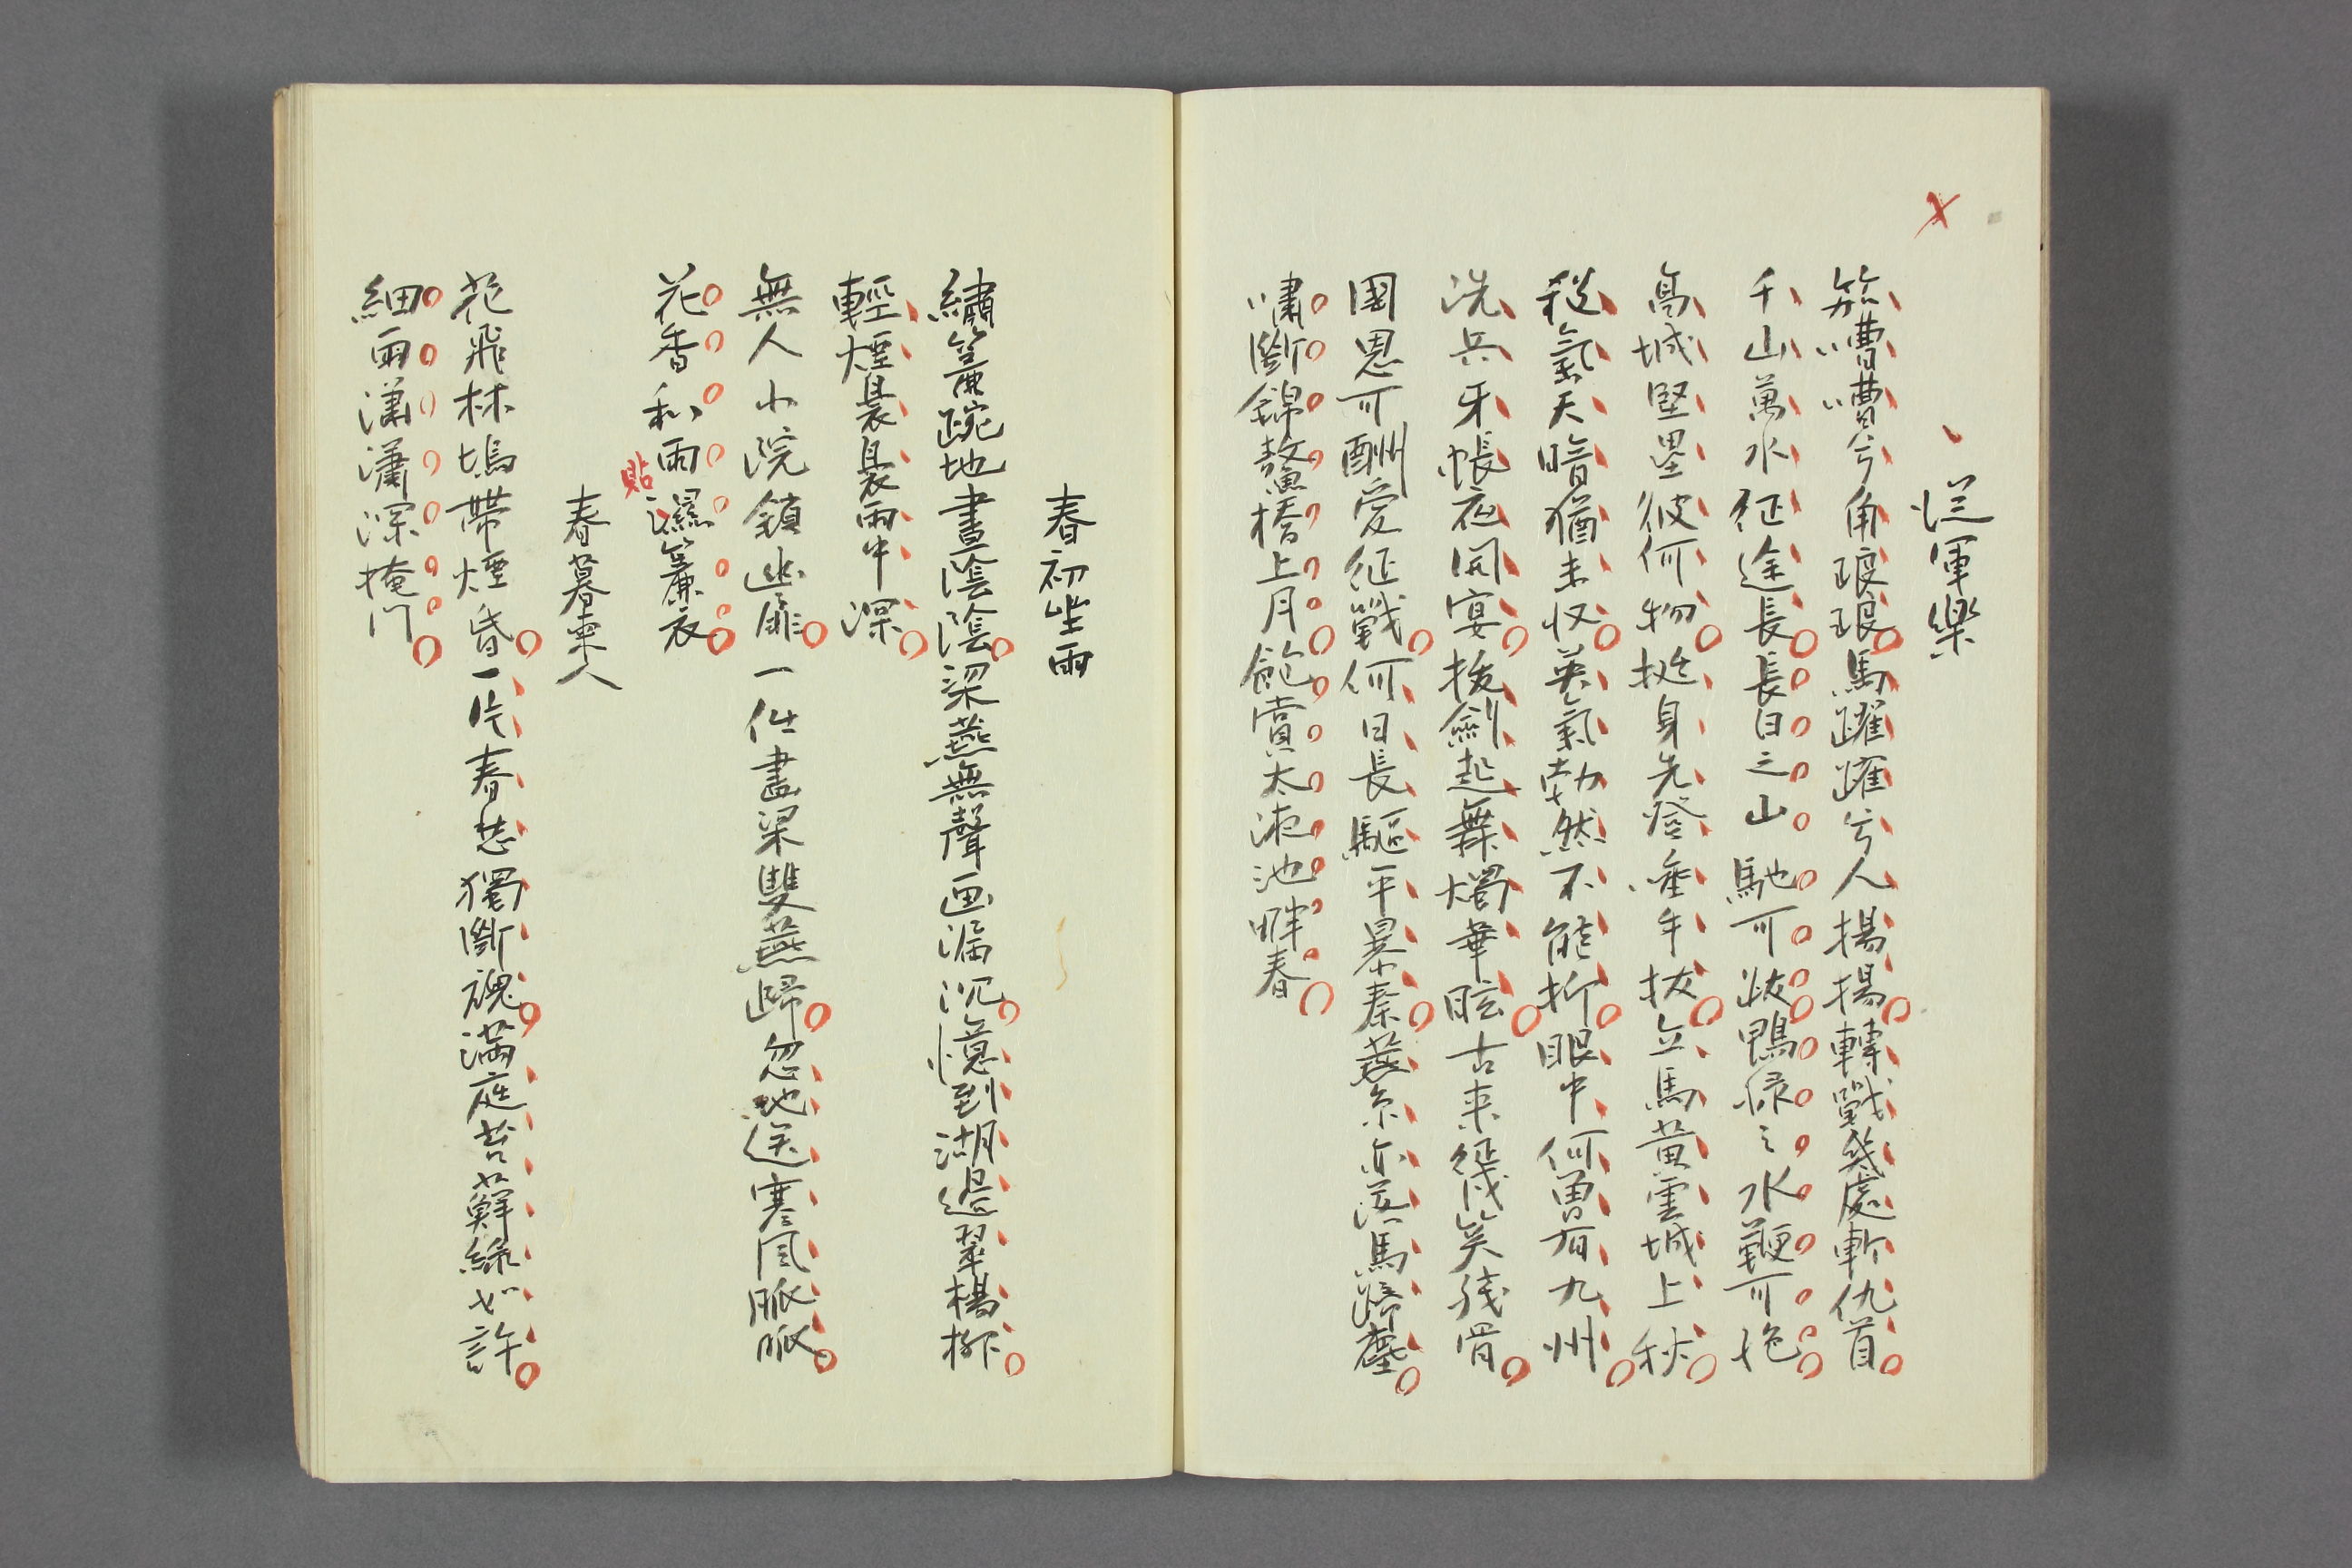 從軍樂
笳嘈嘈兮角琅琅馬躍躍兮人揚揚轉戰幾處斬仇首
千山萬水征途長長白之山馳可跋鴨綠之水鞭可絶
高城堅壘彼何物挺身先登唾手拔立馬黄雲城上秋
殺氣天暗猶未收英氣勃然不能抑眼中何曾有九州
洗兵牙帳夜開宴拔劍起舞燭華眩古来幾笑殘骨
國恩可酬愛征戰何日長驅平暴秦燕京亦没馬蹄塵
嘯斷錦鰲橋上月飽賞太液池畔春
春初坐雨
繡簾踠地晝陰陰梁燕無聲画漏沉憶到湖邊翠楊柳
輕煙裊裊雨中深
無人小院鎖幽扉一任畫梁雙燕歸忽地送寒風脈脈
花香和雨濕簾衣
貼
春暮東人
花飛林塢帶煙昏一片春愁獨斷魂滿庭苔蘚綠如許
細雨瀟瀟深掩門